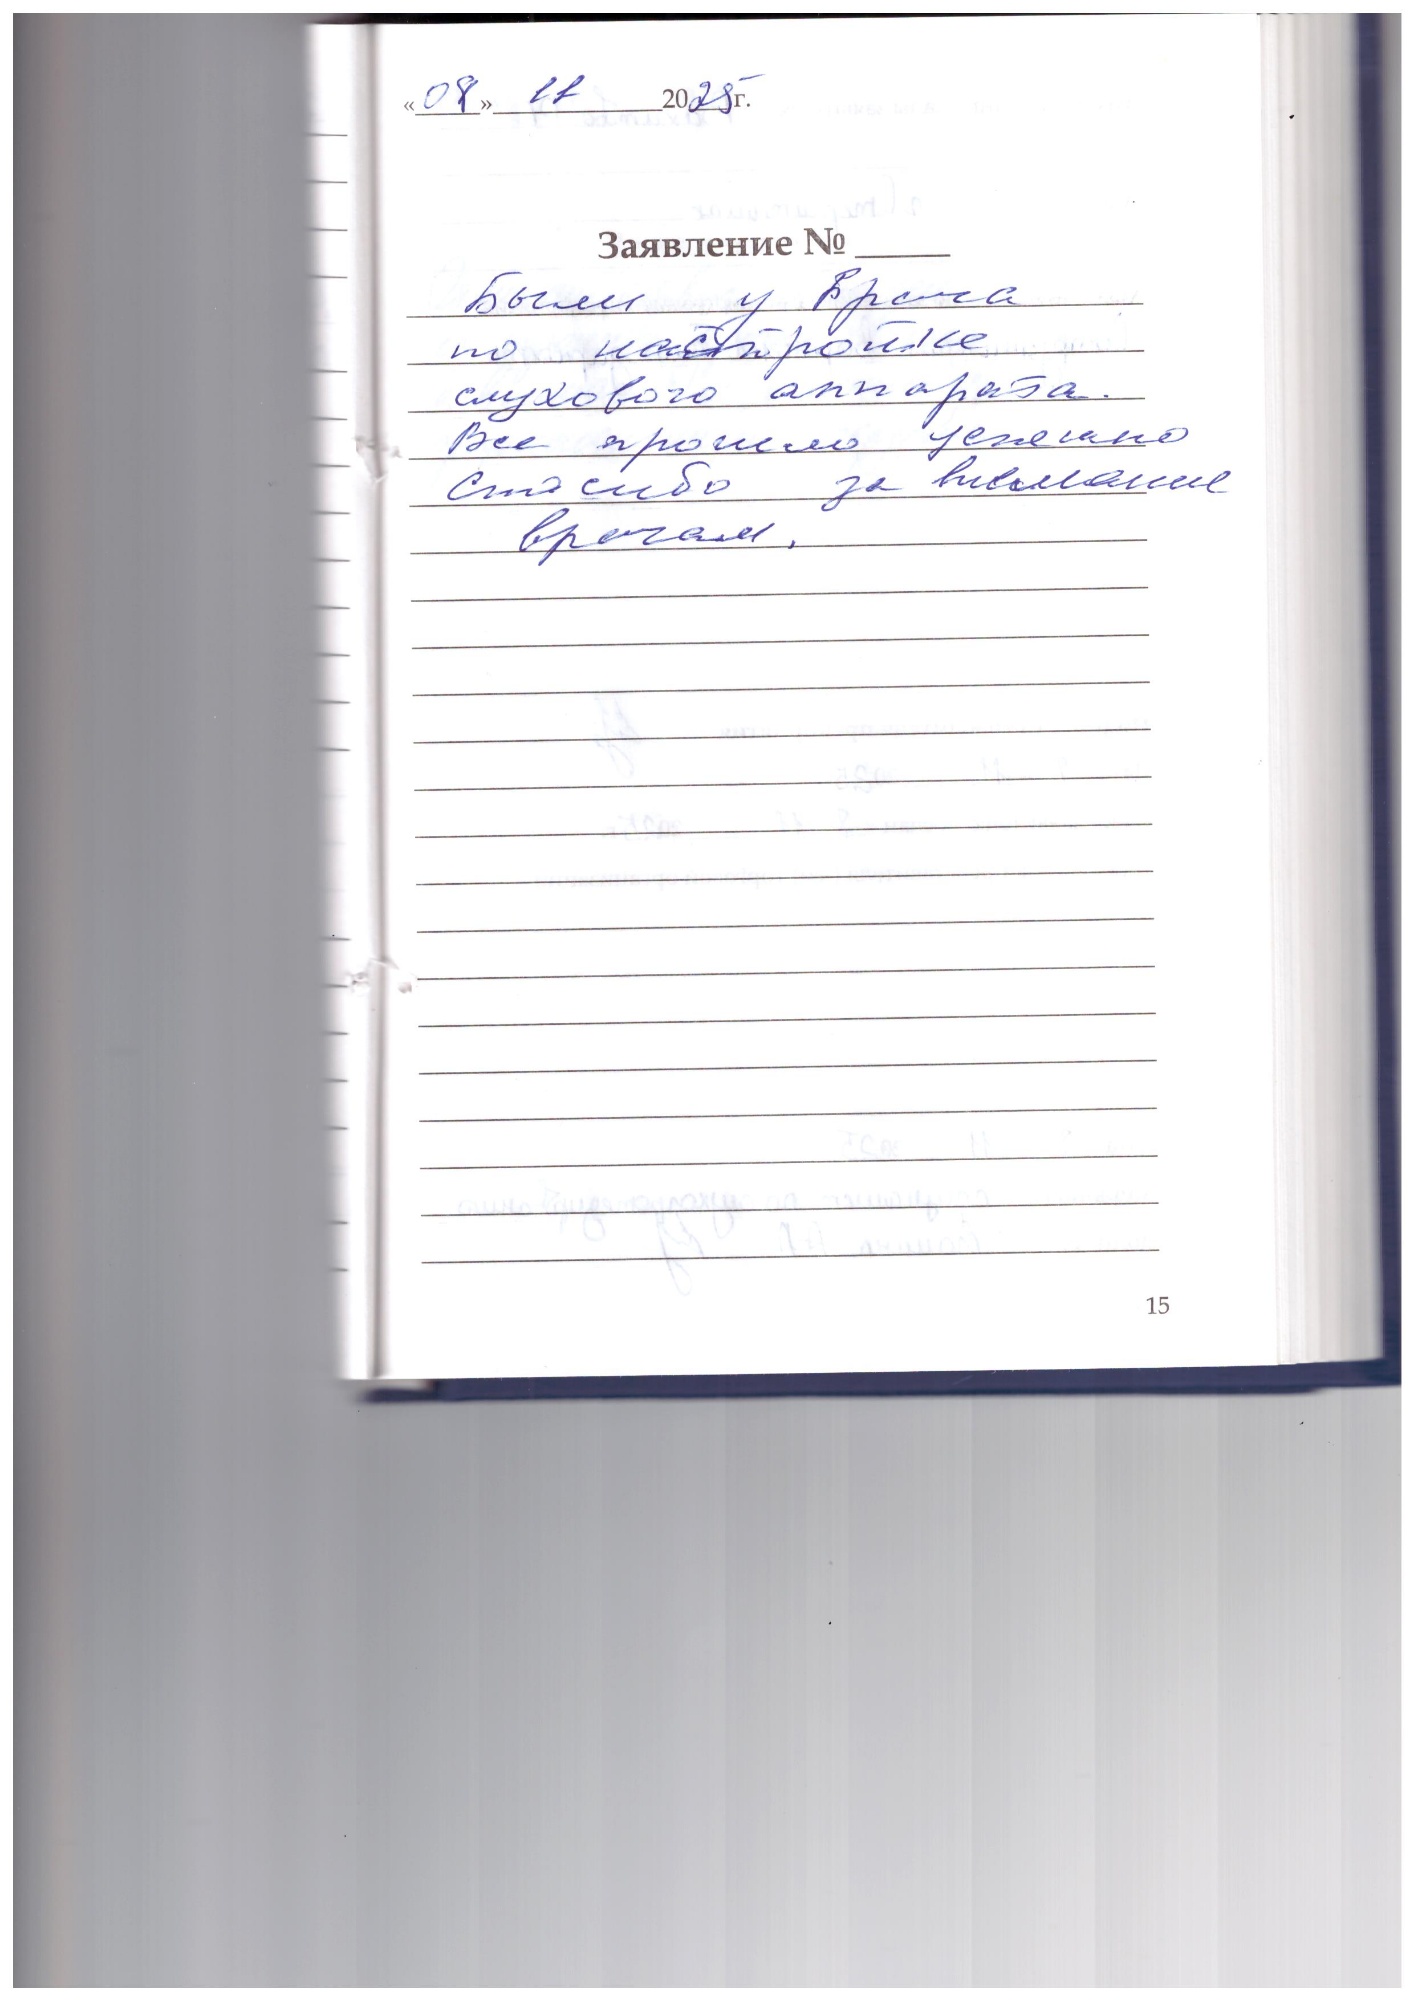 «08» 11 2025г.
Заявление № _____
Были у Врача
по настройке
слухового аппарата.
Все прошло успешно
Спасибо за внимание
врачам.
15